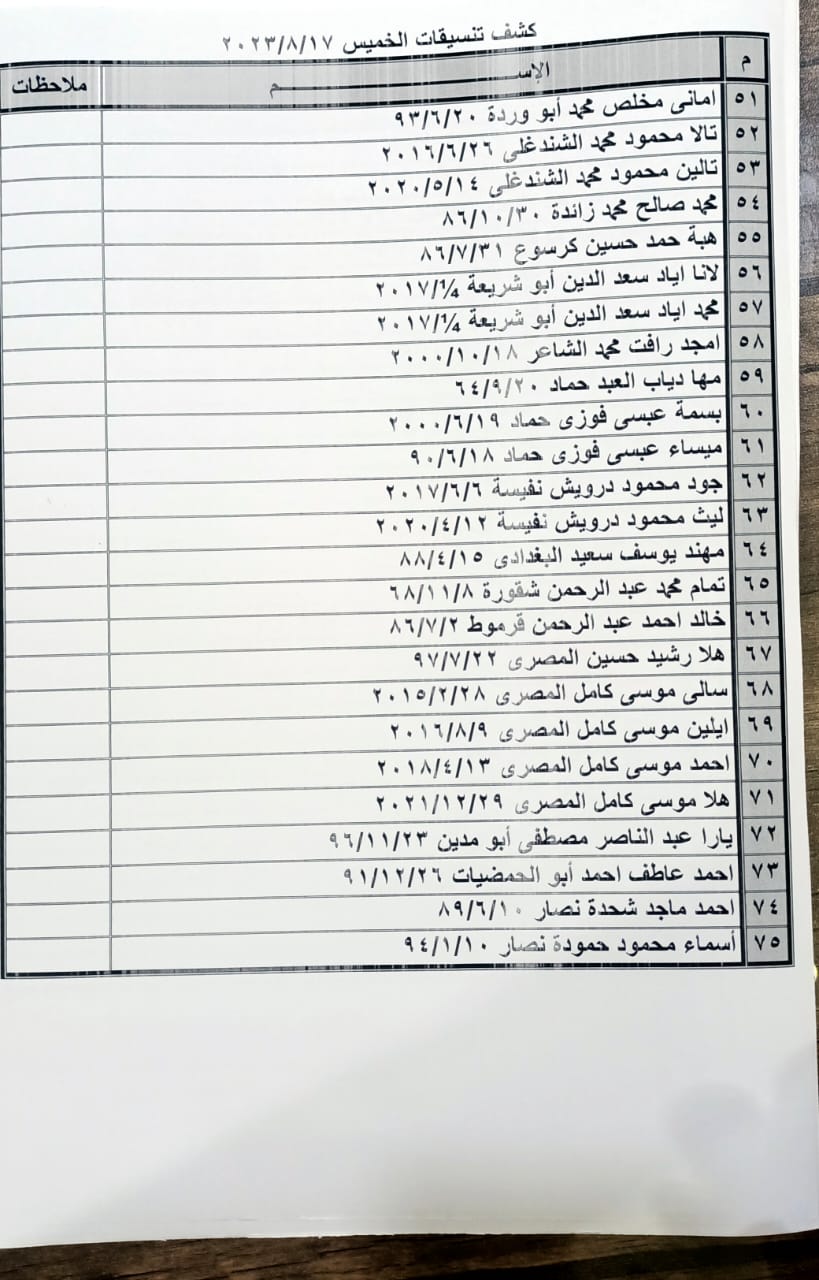 كشف تنسيقات الخميس ٢٠٢٣/٨/١٧
م الإســــــم ملاحظات
٥١ امانى مخلص محمد أبو وردة ٩٣/٦/٢٠
٥٢ تالا محمود محمد الشندغلى ٢٠١٦/٦/٢٦
٥٣ تالين محمود محمد الشندغلى ٢٠٢٠/٥/١٤
٥٤ محمد صالح محمد زائدة ٨٦/١٠/٣٠
٥٥ هبة حمد حسين كرسوع ٨٦/٧/٣١
٥٦ لانا اياد سعد الدين أبو شريعة ٢٠١٧/٦/٤
٥٧ محمد اياد سعد الدين أبو شريعة ٢٠١٧/٦/٤
٥٨ امجد رافت محمد الشاعر ٢٠٠٠/١٠/١٨
٥٩ مها دياب العبد حماد ٦٤/٩/٢٠
٦٠ بسمة عبسى فوزى حماد ٢٠٠٠/٦/١٩
٦١ ميساء عبسى فوزى حماد ٩٠/٦/١٨
٦٢ جود محمود درويش نفيسة ٢٠١٧/٦/٦
٦٣ ليث محمود درويش نفيسة ٢٠٢٠/٤/١٢
٦٤ مهند يوسف سعيد البغدادى ٨٨/٤/١٥
٦٥ تمام محمد عبد الرحمن شقورة ٦٨/١١/٨
٦٦ خالد احمد عبد الرحمن قرموط ٨٦/٧/٢
٦٧ هلا رشيد حسين المصرى ٩٧/٧/٢٢
٦٨ سالى موسى كامل المصرى ٢٠١٥/٢/٢٨
٦٩ ايلين موسى كامل المصرى ٢٠١٦/٨/٩
٧٠ احمد موسى كامل المصرى ٢٠١٨/٤/١٣
٧١ هلا موسى كامل المصرى ٢٠٢١/١٢/٢٩
٧٢ يارا عبد الناصر مصطفى أبو مدين ٩٦/١١/٢٣
٧٣ احمد عاطف احمد أبو الحمضيات ٩١/١٢/٢٦
٧٤ احمد ماجد شحدة نصار ٨٩/٦/١٠
٧٥ أسماء محمود حمودة نصار ٩٤/١/١٠